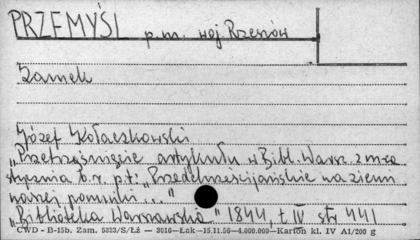 PRZEMYŚL p.m. woj Rzeszów
Zamek
Józef Kołaczkowski.
„Przetrząśnięcie artykułu w Bibl. Warsz. z mca
stycznia b.r. p.t: „Przedchrześcijańskie na ziemi
naszej pomniki..."
„Biblioteka Warszawska" 1844, t. IV str 441
CWD - B-15b. Zam. 5833/S/Łż — 3016—Łok—15.11.56—4.000.000—Karton kl. IV A1/200 g